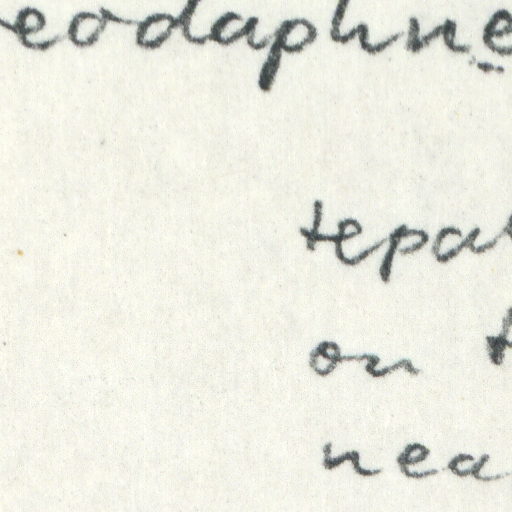 eodaphne
tepal
on t
nea